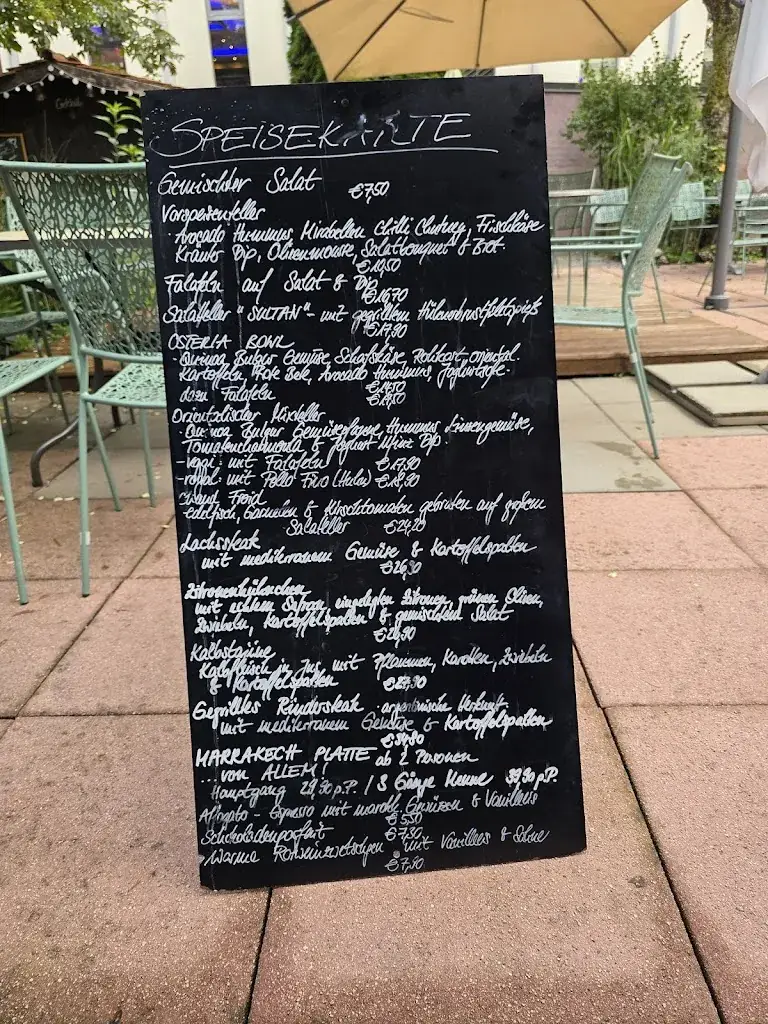 SPEISEKARTE
Gemischter Salat €7,50
Vorspeisenteller
- Avocado Hummus, Mirabellen Chilli Chutney, Frischkäse
Kräuter Dip, Olivenmousse, Salatbouquet & Brot.
Falafeln auf Salat & Dip
€16,70
Salatteller "SULTAN" - mit gegrillten Hühnerbrustfiletspieß
€17,90
OSTERIA BOWL
- Quinoa, Bulgur Gemüse, Schafskäse, Rohkost, oriental.
Kartoffeln, Rote Bete, Avocado Hummus,
dazu Falafeln
Orientalischer Mixteller
- Quinoa Bulgur Hummus Linsengemüse,
& Joghurt Minz Dip
- vegi: mit Falafeln €17,90
- royal: mit Pollo Fino (Huhn) €18,90
- Edelfisch, Garnelen & Kirschtomaten gebraten auf großem
Salatteller €24,20
Lachssteak
mit mediterranem Gemüse & Kartoffelspalten
€26,90
Zitronenhühnchen
mit echtem Safran, eingelegten Zitronen, grünen Oliven,
Zwiebeln, Kartoffelspalten & gemischtem Salat
Kalbstajine
Kalbfleisch in Jus mit Pflaumen, Karotten, Zwiebeln
& Kartoffelspalten
Gegrilltes Rindersteak - argentinische Herkunft
mit mediterranem Gemüse & Kartoffelspalten
€34,90
MARRAKECH PLATTE ab 2 Personen
... von ALLEM!
Hauptgang 29,90 p.P. / 3 Gänge Menue 39,90 p.P.
Affogato - Espresso mit marokk. Gewürzen & Vanilleeis
€5,50
Schokoladenparfait €7,90
- Warme Rotweinzwetschgen mit Vanilleeis & Sahne
€7,90